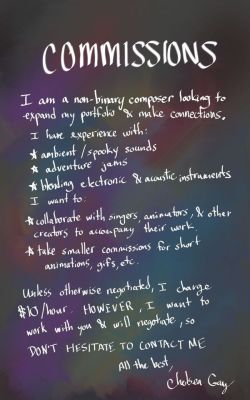 COMMISSIONS
I am a non-binary composer looking to
expand my portfolio & make connections.
I have experience with:
★ ambient/spooky sounds
★ adventure jams
★ blending electronic & acoustic instruments
I want to:
★ collaborate with singers, animators, & other
creators to accompany their work.
★ take smaller commissions for short
animations, gifs, etc.
Unless otherwise negotiated, I charge
$10/hour. HOWEVER, I want to
work with you & will negotiate, so
DON'T HESITATE TO CONTACT ME
All the best,
Chelsea Gay